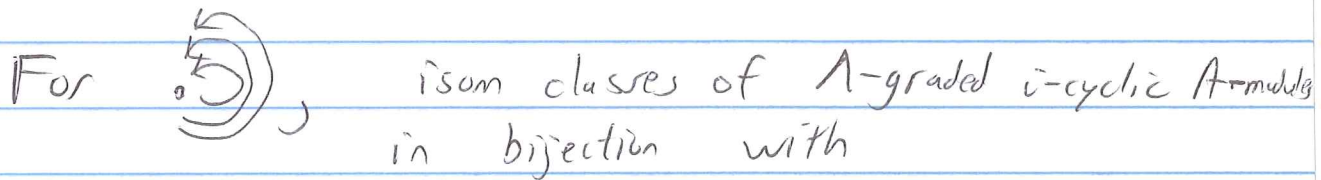 For , isom classes of Λ-graded i-cyclic A-modules
in bijection with